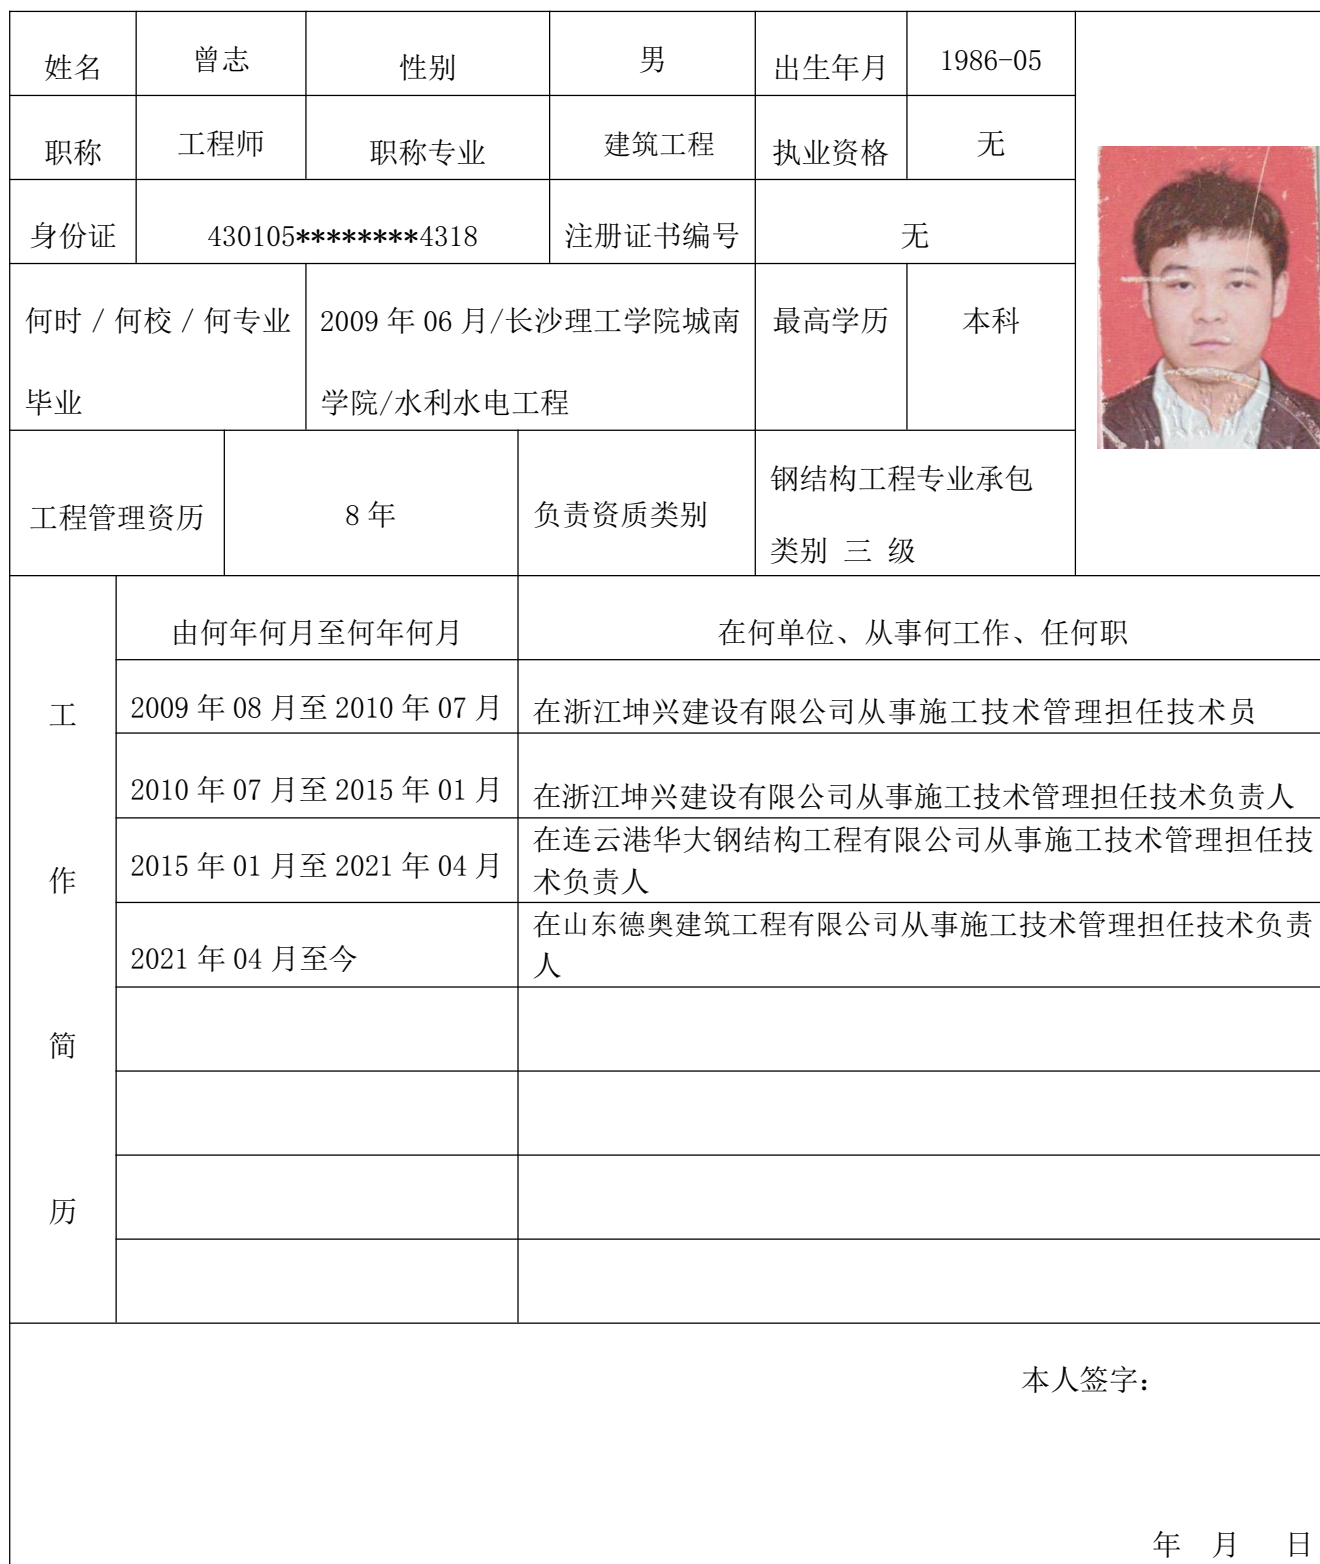 姓名 曾志 性别 男 出生年月 1986-05
职称 工程师 职称专业 建筑工程 执业资格 无
身份证 430105********4318 注册证书编号 无
何时 / 何校 / 何专业 2009 年 06 月/长沙理工学院城南 最高学历 本科
毕业 学院/水利水电工程
工程管理资历 8 年 负责资质类别 钢结构工程专业承包
类别 三 级
由何年何月至何年何月 在何单位、从事何工作、任何职
工
2009 年 08 月至 2010 年 07 月 在浙江坤兴建设有限公司从事施工技术管理担任技术员
2010 年 07 月至 2015 年 01 月 在浙江坤兴建设有限公司从事施工技术管理担任技术负责人
作
2015 年 01 月至 2021 年 04 月 在连云港华大钢结构工程有限公司从事施工技术管理担任技
术负责人
2021 年 04 月至今 在山东德奥建筑工程有限公司从事施工技术管理担任技术负责
人
简
历
本人签字：
年 月 日